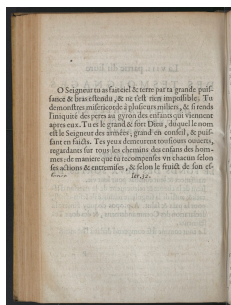 O Seigneur tu as fait ciel & terre par ta grande puis-
sance & bras estendu, & ne t'est rien impossible. Tu
demonstres misericorde à plusieurs miliers, & si rends
l'iniquité des peres au gyron des enfants qui viennent
apres eux. Tu es le grand & fort Dieu, duquel le nom
est le Seigneur des armées; grand en conseil, & puis-
sant en faicts. Tes yeux demeurent tousiours ouuerts,
regardants sur tous les chemins des enfans des hom-
mes: de maniere que tu recompenses vn chacun selon
ses actions & entremises, & selon le fruict de son es-
Ier.32.